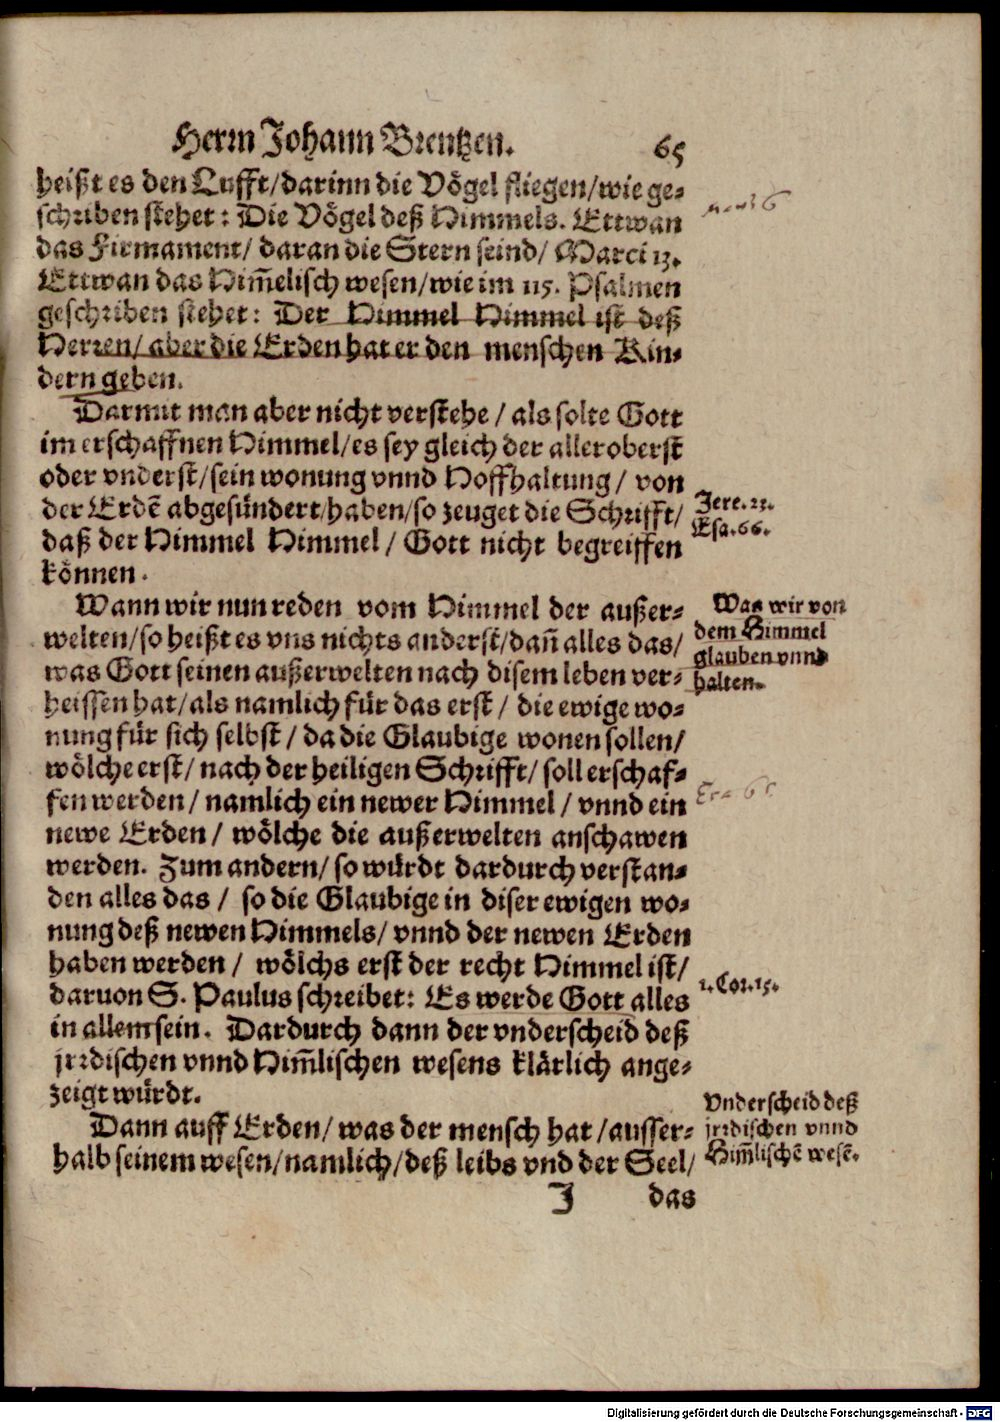 Herrn Johann Brentzen. 65
heißt es den Lufft/darinn die Vögel fliegen/wie ge-
schriben stehet: Die Vögel deß Himmels. Ettwan
das Firmament/ daran die Stern seind/ Marci 13.
Ettwan das Him̃elisch wesen/wie im 115. Psalmen
geschriben stehet: Der Himmel Himmel ist deß
Herren/ aber die Erden hat er den menschen Kin-
dern geben.
Darmit man aber nicht verstehe / als solte Gott
im erschaffnen Himmel/es sey gleich der alleroberst
oder vnderst/sein wonung vnnd Hoffhaltung / von
der Erdẽ abgesündert/haben/so zeuget die Schrifft/
Jere. 23.
Esa. 66.
daß der Himmel Himmel / Gott nicht begreiffen
können.
Wann wir nun reden vom Himmel der außer-
Was wir von
dem Himmel
glauben vnnd
halten.
welten/so heißt es vns nichts anderst/dañ alles das/
was Gott seinen außerwelten nach disem leben ver-
heissen hat/als namlich für das erst / die ewige wo-
nung für sich selbst / da die Glaubige wonen sollen/
wölche erst/ nach der heiligen Schrifft/ soll erschaf-
fen werden / namlich ein newer Himmel / vnnd ein
newe Erden / wölche die außerwelten anschawen
werden. Zum andern/ so würdt dardurch verstan-
den alles das / so die Glaubige in diser ewigen wo-
nung deß newen Himmels/ vnnd der newen Erden
haben werden / wölchs erst der recht Himmel ist/
1. Cor. 15.
daruon S. Paulus schreibet: Es werde Gott alles
in allem sein. Dardurch dann der vnderscheid deß
jrrdischen vnnd Him̃lischen wesens klärlich ange-
zeigt würdt.
Vnderscheid deß
jrrdischen vnnd
Him̃lischẽ wesẽ.
Dann auff Erden/ was der mensch hat /ausser-
halb seinem wesen/namlich/deß leibs vnd der Seel/
J das
Digitalisierung gefördert durch die Deutsche Forschungsgemeinschaft - DFG